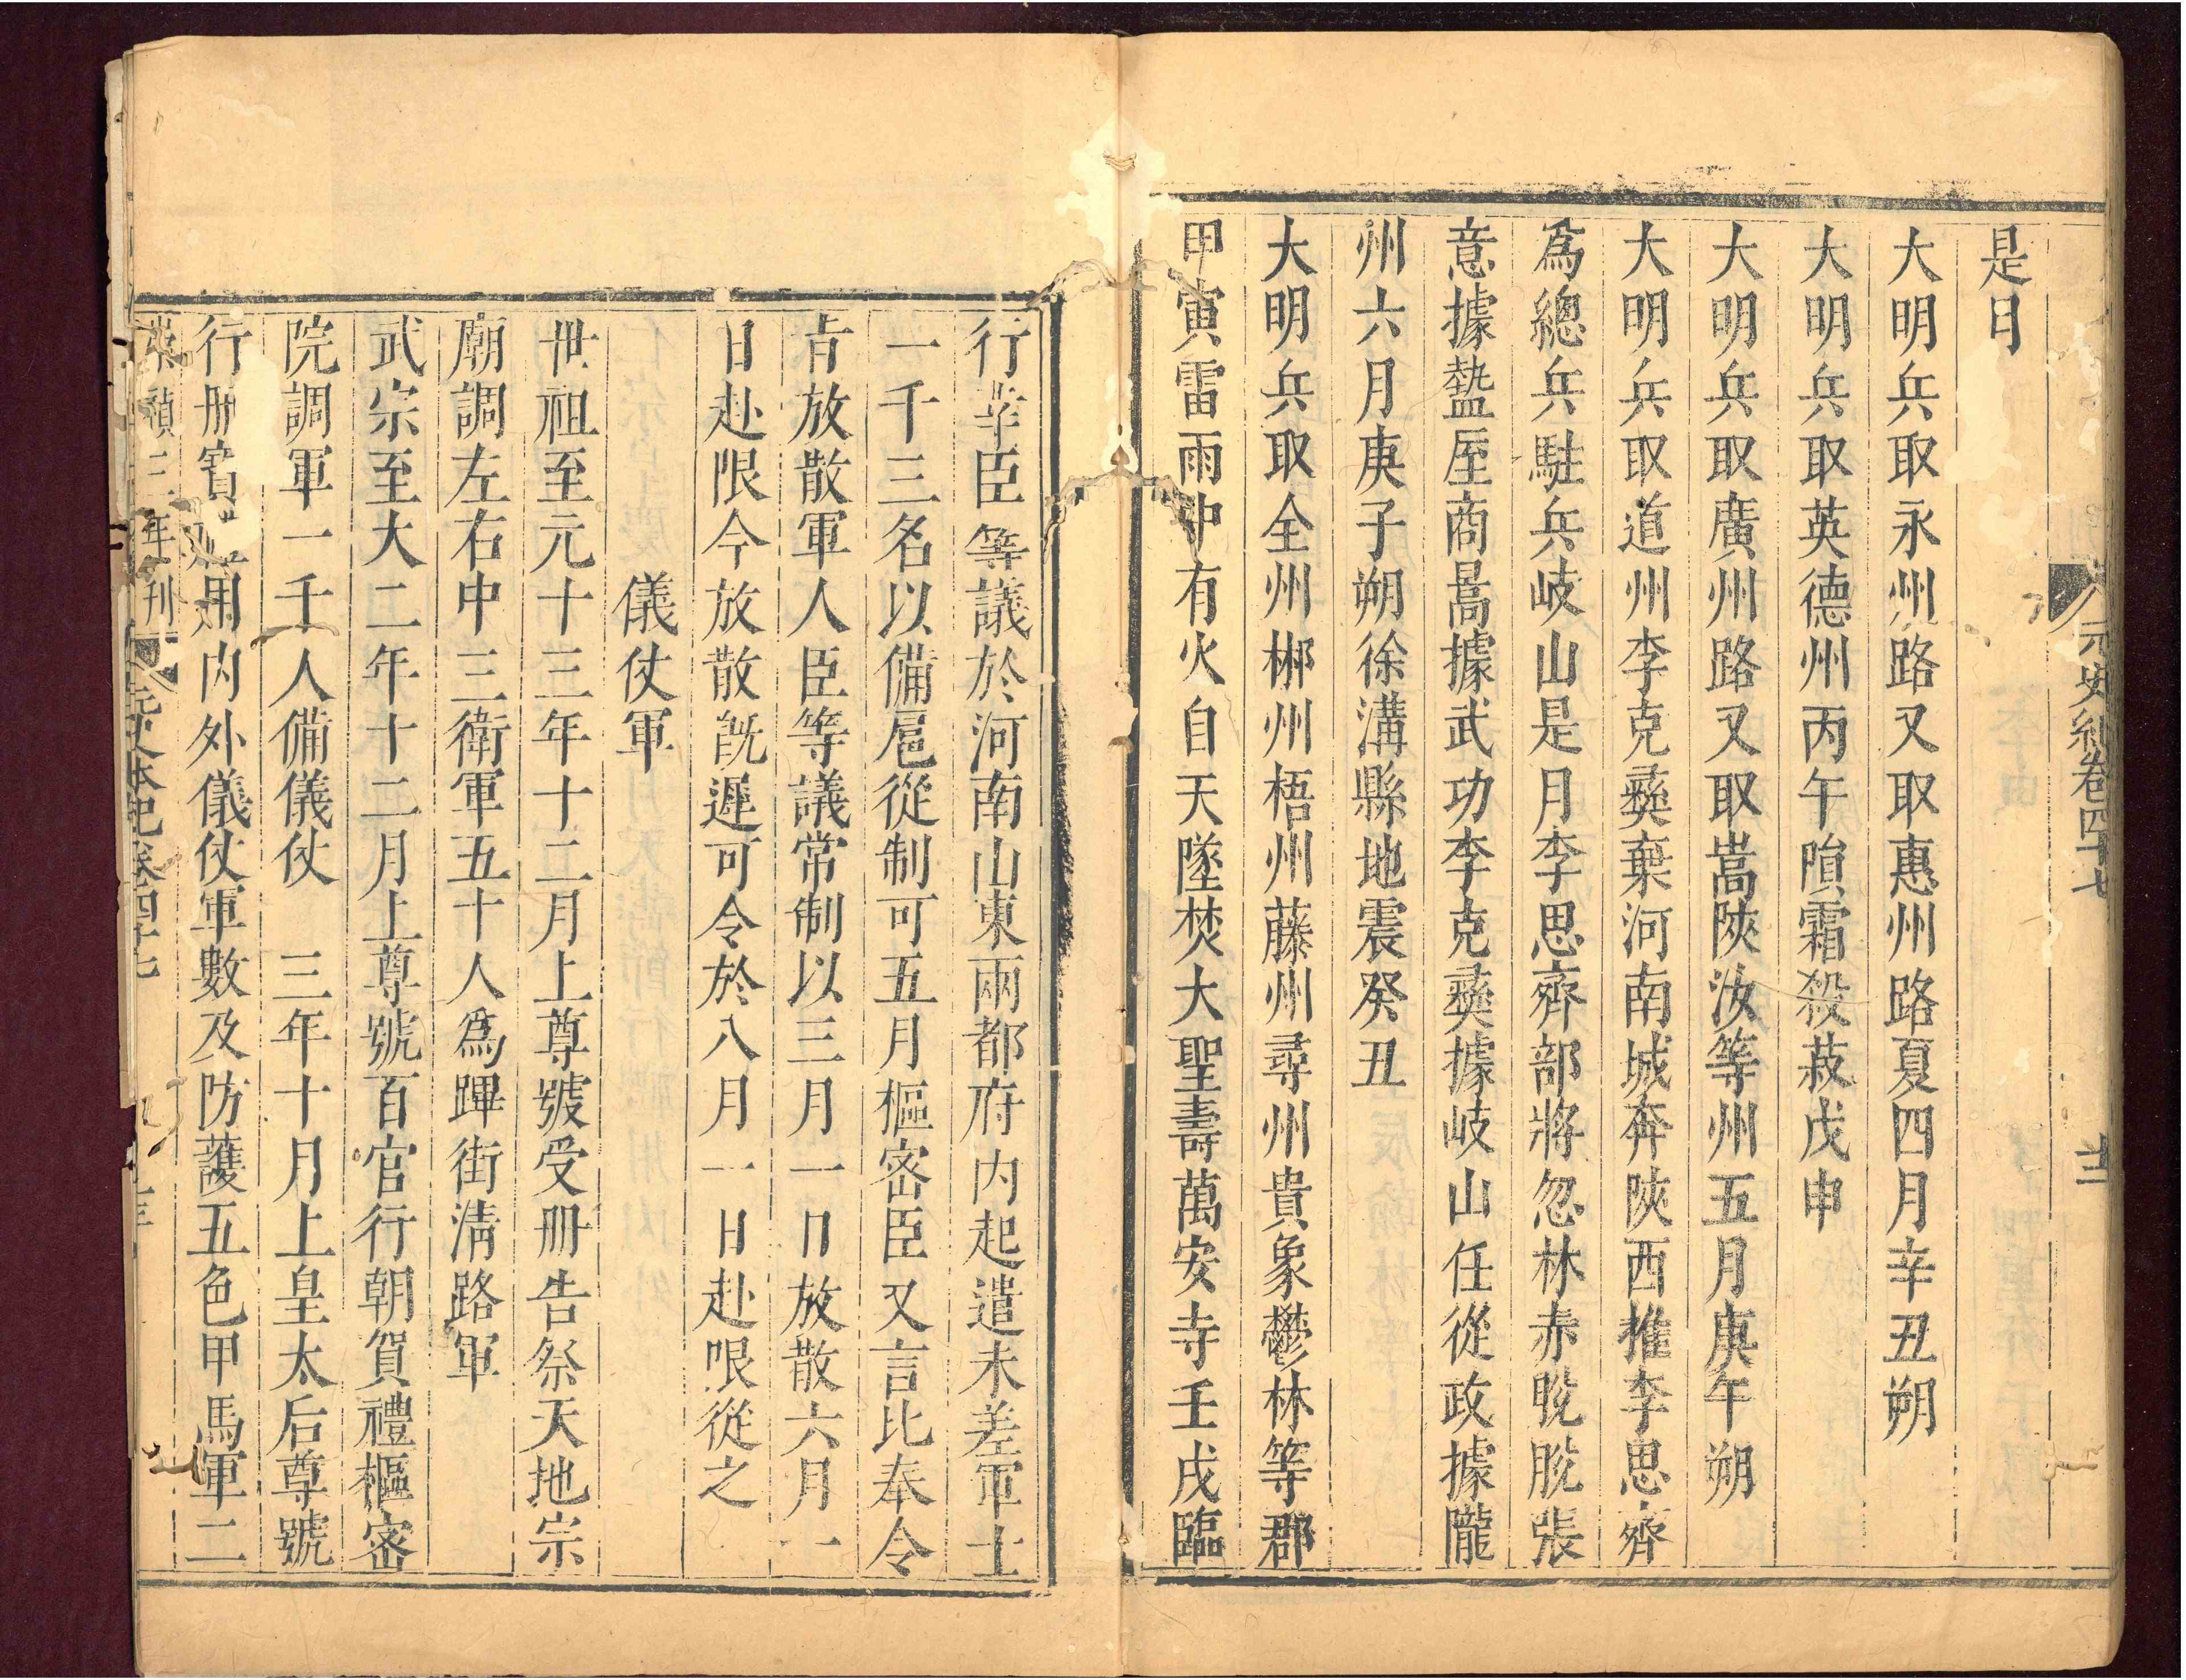 元史紀卷四十七
十二
是日
大明兵取永州路又取惠州路夏四月辛丑朔
大明兵取英德州丙午隕霜殺菽戊申
大明兵取廣州路又取嵩陝汝等州五月庚午朔
大明兵取道州李克彝棄河南城奔陝西推李思齊
爲總兵駐兵岐山是月李思齊部將忽林赤脫脫張
意據盩厔商暠據武功李克彝據岐山任從政據隴
州六月庚子朔徐溝縣地震癸丑
大明兵取全州郴州梧州藤州尋州貴象鬱林等郡
甲寅雷雨中有火自天墜焚大聖壽萬安寺壬戌臨
行幸臣等議於河南山東兩都府内起遣未差軍士
一千三名以備扈從制可五月樞密臣又言比奉令
旨放散軍人臣等議常制以三月一日放散六月一
日赴限今放散旣遲可令於八月一日赴限從之
儀仗軍
世祖至元十三年十二月上尊號受册告祭天地宗
廟調左右中三衛軍五十人爲蹕街淸路軍
武宗至大二年十二月上尊號百官行朝賀禮樞密
院調軍一千人備儀仗　三年十月上皇太后尊號
行册寶用内外儀仗軍數及防護五色甲馬軍二
三年刊
元史本紀卷四十七